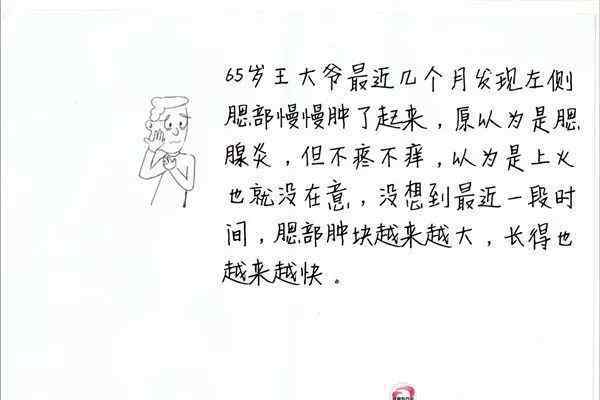 65岁王大爷最近几个月发现左侧
腮部慢慢肿了起来，原以为是腮
腺炎，但不疼不痒，以为是上火
也就没在意，没想到最近一段时
间，腮部肿块越来越大，长得也
越来越快。